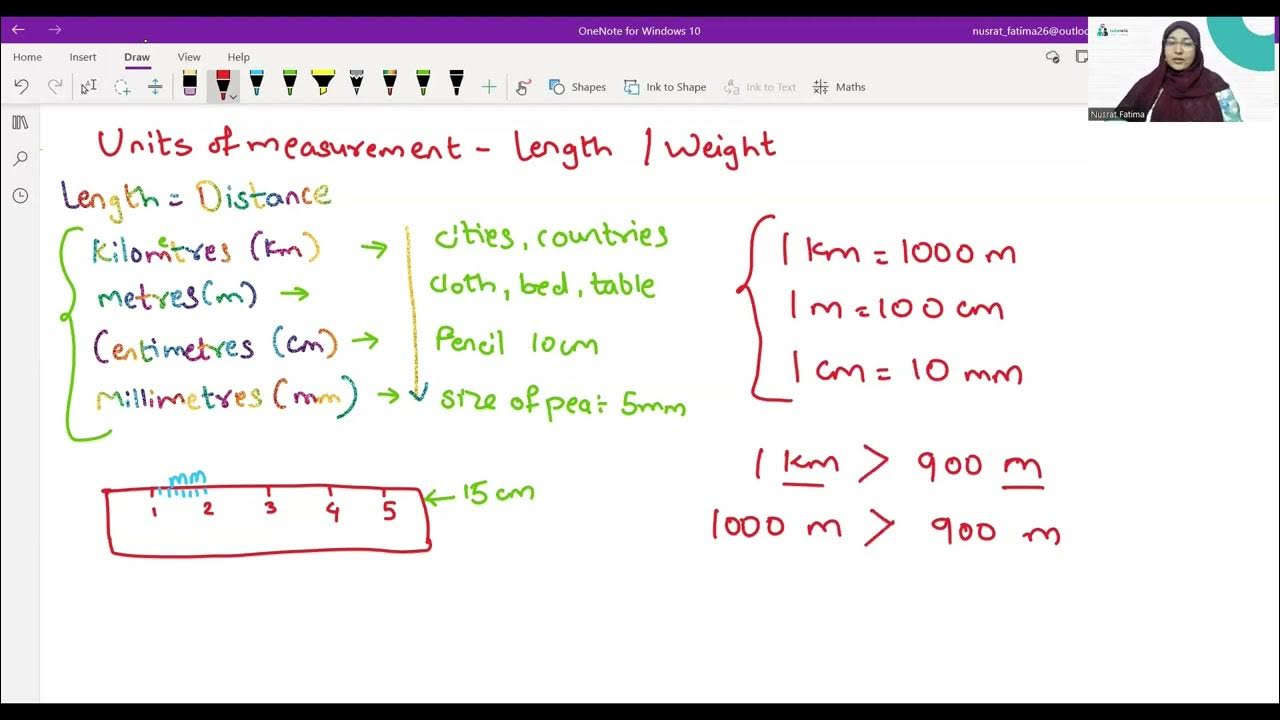 OneNote for Windows 10
nusrat_fatima26@outloo
Home Insert Draw View Help
Shapes Ink to Shape Ink to Text Maths
Nusrat Fatima
Units of measurement - Length / Weight
Length = Distance
Kilometres (km) → cities, countries
metres (m) → cloth, bed, table
Centimetres (cm) → Pencil 10cm
Millimetres (mm) → size of pea÷ 5mm
1 km = 1000 m
1 m = 100 cm
1 cm = 10 mm
1 km > 900 m
1000 m > 900 m
mm
1 2 3 4 5
← 15 cm